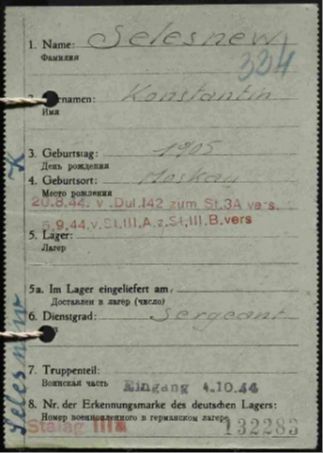 1. Name: Selesnew
Фамилия
334
ernamen: Konstantin
Имя
3. Geburtstag: 1905
День рождения
4. Geburtsort: Moskau
Место рождения
20.8.44. v. Dul.142 zum St.3A vers.
6.9.44.v.St.III.A.z.St.III.B.vers
5. Lager:
Лагер
5a. Im Lager eingeliefert am:
Доставлен в лагер (число)
6. Dienstgrad: Sergeant
7. Truppenteil:
Воинская часть
Eingang 4.10.44
8. Nr. der Erkennungsmarke des deutschen Lagers:
Номер военнопленного в германском лагере
Stalag III 132283
Selesnew K